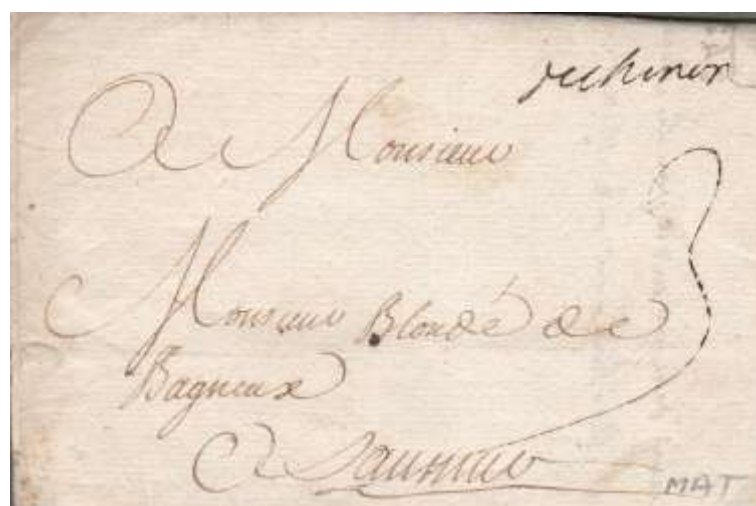 de chinon
A Monsieur
3
Monsieur Blondé de
Bagneux
A Saumur
MAT